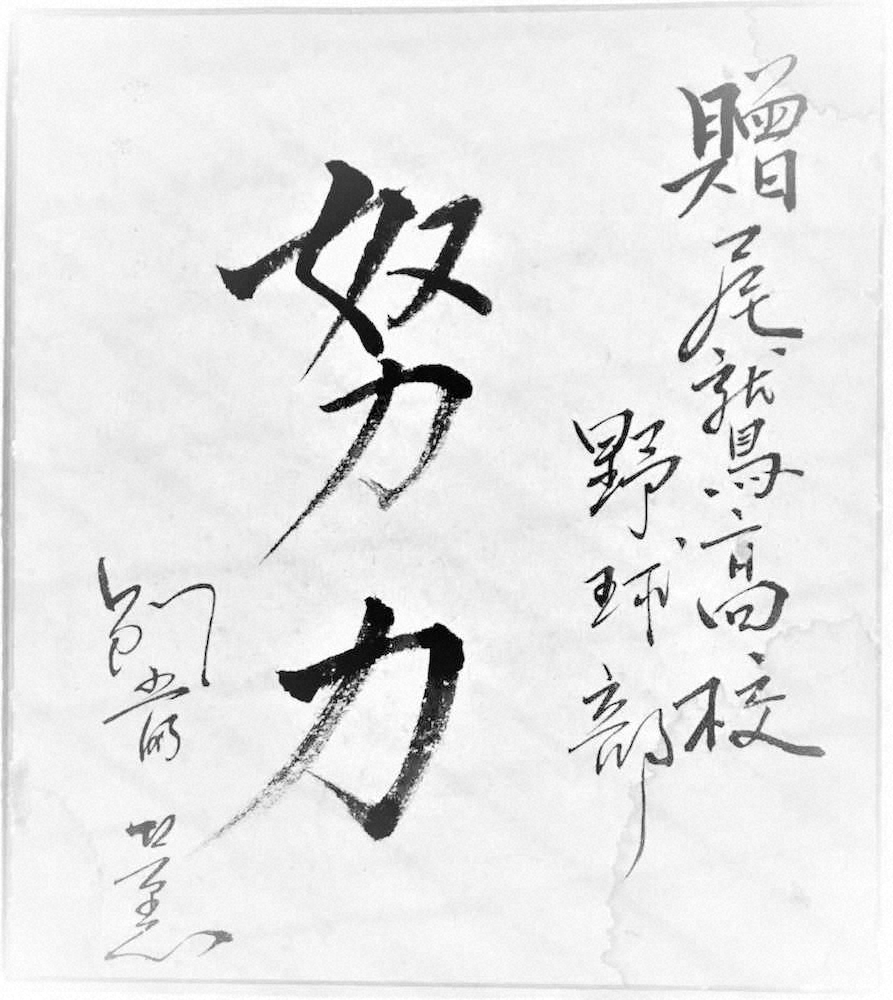 贈 尾鷲高校
野球部
努力